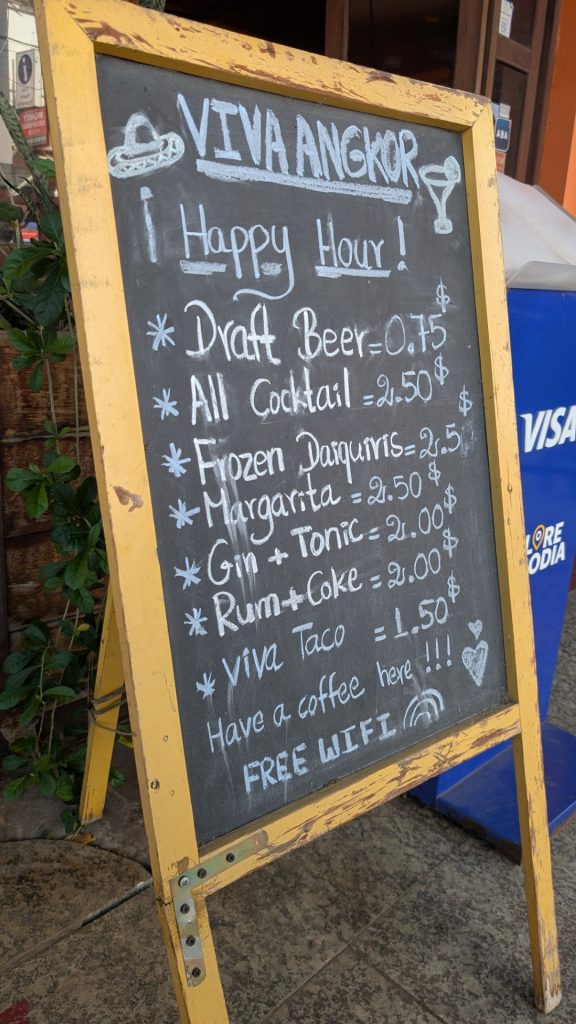 VIVA ANGKOR
¡ Happy Hour !
* Draft Beer = 0.75 $
* All Cocktail = 2.50 $
* Frozen Daiquiris = 2.5 $
* Margarita = 2.50 $
* Gin + Tonic = 2.00 $
* Rum + Coke = 2.00 $
* Viva Taco = 1.50 $
Have a coffee here !!!
FREE WIFI
VISA
LORE
ODIA
ABA